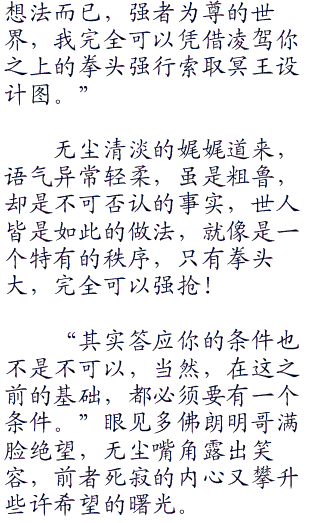 想法而已，强者为尊的世
界，我完全可以凭借凌驾你
之上的拳头强行索取冥王设
计图。”
无尘清淡的娓娓道来，
语气异常轻柔，虽是粗鲁，
却是不可否认的事实，世人
皆是如此的做法，就像是一
个特有的秩序，只有拳头
大，完全可以强抢！
“其实答应你的条件也
不是不可以，当然，在这之
前的基础，都必须要有一个
条件。”眼见多佛朗明哥满
脸绝望，无尘嘴角露出笑
容，前者死寂的内心又攀升
些许希望的曙光。